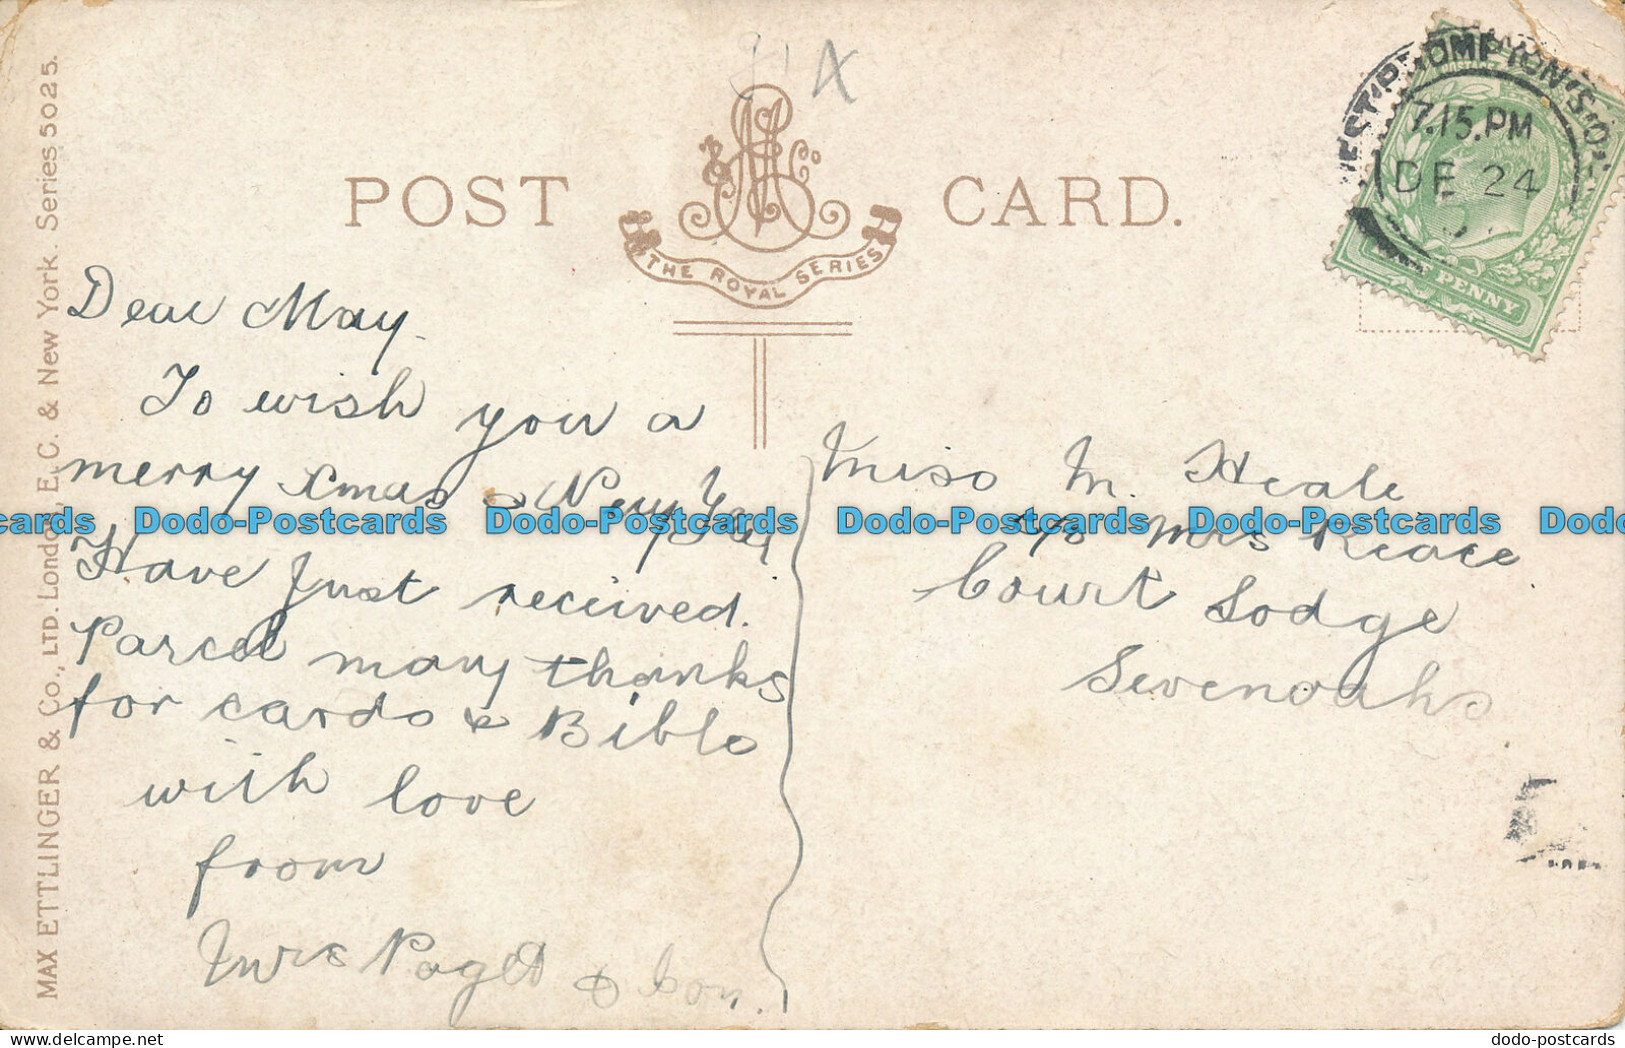 POST CARD.
& Co
THE ROYAL SERIES
WEST BROMPTON S.O.
7.15.PM
DE 24
PENNY
MAX ETTLINGER & Co., LTD. London, E.C. & New York. Series 5025.
Dear May.
To wish you a
merry Xmas & New Year
Have just received.
Parcel many thanks
for cards &
with love
from
Mrs Paget &
Miss M. Heale
c/o Mrs
Court Lodge
Sevenoaks
cards Dodo-Postcards Dodo-Postcards Dodo-Postcards Dodo-Postcards Dodo
dodo-postcards